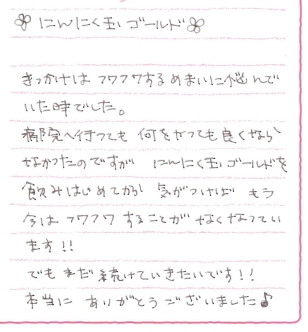 にんにく玉ゴールド
きっかけはフワフワするめまいに悩んで
いた時でした。
病院へ行っても 何をやっても良くなら
なかったのですが にんにく玉ゴールドを
飲みはじめてから 気がつけば もう
今はフワフワすることがなくなってい
ます!!
でもまだ続けていきたいです!!
本当に ありがとうございました♪